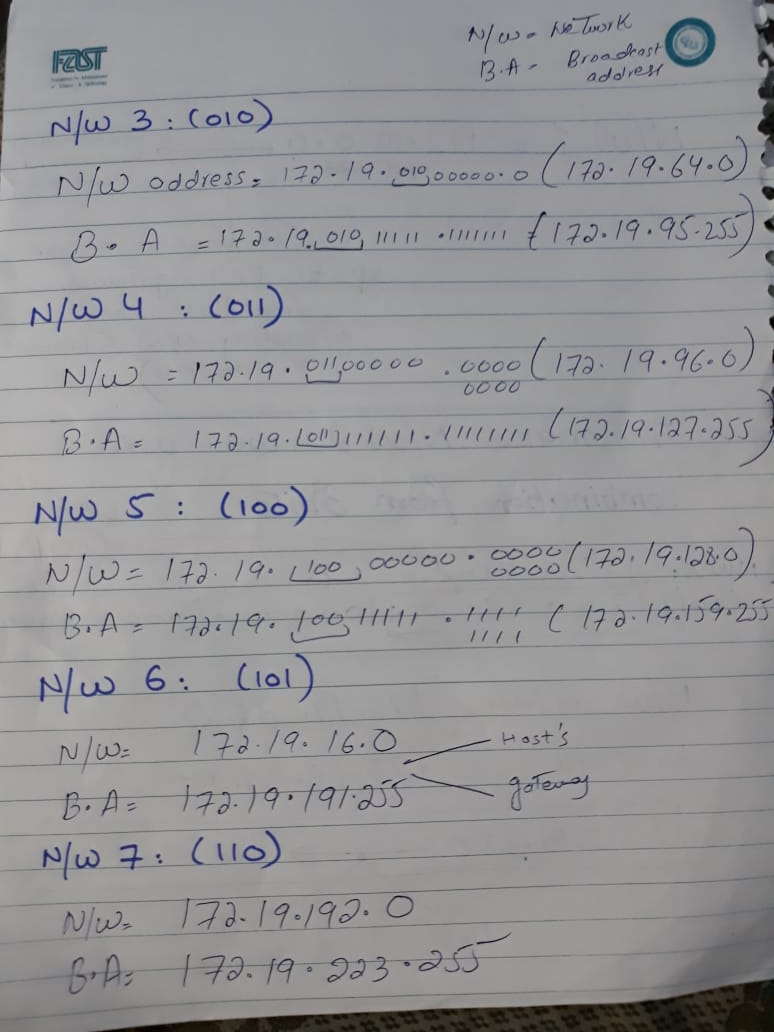 FAST
N/W = Network
B.A = Broadcast
address
N/W 3 : (010)
N/W address = 172.19.010,00000.0 (172.19.64.0)
B.A = 172.19.010,11111.11111111 (172.19.95.255)
N/W 4 : (011)
N/W = 172.19.011,00000.0000 (172.19.96.0)
0000
B.A = 172.19.011,111111.11111111 (172.19.127.255)
N/W 5 : (100)
N/W = 172.19.100,00000.0000 (172.19.128.0)
0000
B.A = 172.19.100,11111.1111 (172.19.159.255
1111
N/W 6: (101)
N/W = 172.19.16.0
Host's
B.A = 172.19.191.255
gateway
N/W 7: (110)
N/W = 172.19.192.0
B.A = 172.19.223.255